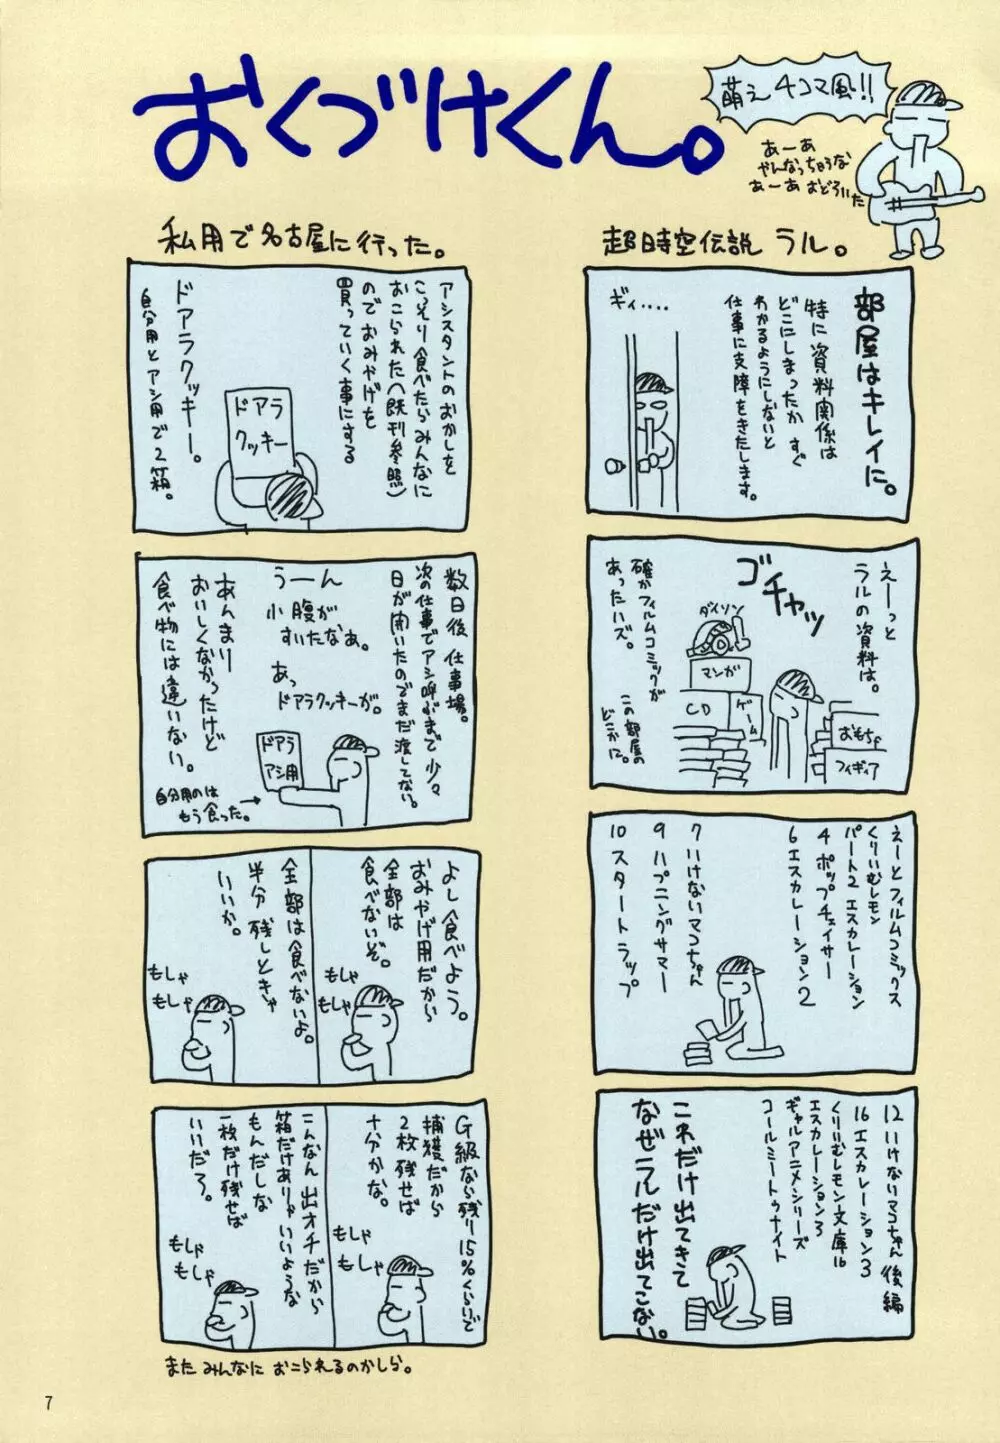 おくづけくん。
萌え4コマ風!!
あーあ
やんなっちゃうな
あーあ おどろいた
超時空伝説 ラル。
部屋はキレイに。
特に資料関係は
どこにしまったか すぐ
わかるようにしないと
仕事に支障をきたします。
ギィ....
えーっと
ラルの資料は。
ゴチャッ
ダイソン
マンガ
CD
ゲーム
おもちゃ
フィギィア
確かフィルムコミックが
あったハズ。
この部屋の
どこかに。
えーとフィルムコミックス
くりいむレモン
パート2 エスカレーション
4 ポップチェイサー
6 エスカレーション2
7 いけないマコちゃん
9 ハプニングサマー
10 スタートラップ
12 いけないマコちゃん 後編
16 エスカレーション3
くりいむレモン文庫16
エスカレーション3
ギャルアニメシリーズ
コールミートゥナイト
これだけ出てきて
なぜラルだけ出てこない。
私用で名古屋に行った。
アシスタントのおかしを
こっそり食べたらみんなに
おこられた(既刊参照)
のでおみやげを
買っていく事にする
ドアラ
クッキー
ドアラクッキー。
自分用とアシ用で2箱。
数日後 仕事場。
次の仕事でアシ呼ぶまで少々
日が開いたのでまだ渡してない。
うーん
小腹が
すいたなぁ。
あっ
ドアラクッキーが。
ドアラ
アシ用
あんまり
おいしくなかったけど
食べ物には違いない。
自分用のは
もう食った。
よし食べよう。
おみやげ用だから
全部は
食べないぞ。
もしゃ
もしゃ
全部は食べないよ。
半分 残しときゃ
いいか。
もしゃ
もしゃ
G級なら残り15%くらいで
捕獲だから
2枚残せば
十分かな。
もしゃ
もしゃ
こんなん 出オチだから
箱だけありゃいいような
もんだしな
一枚だけ残せば
いいだろ。
もしゃ
もしゃ
また みんなに おこられるのかしら。
7